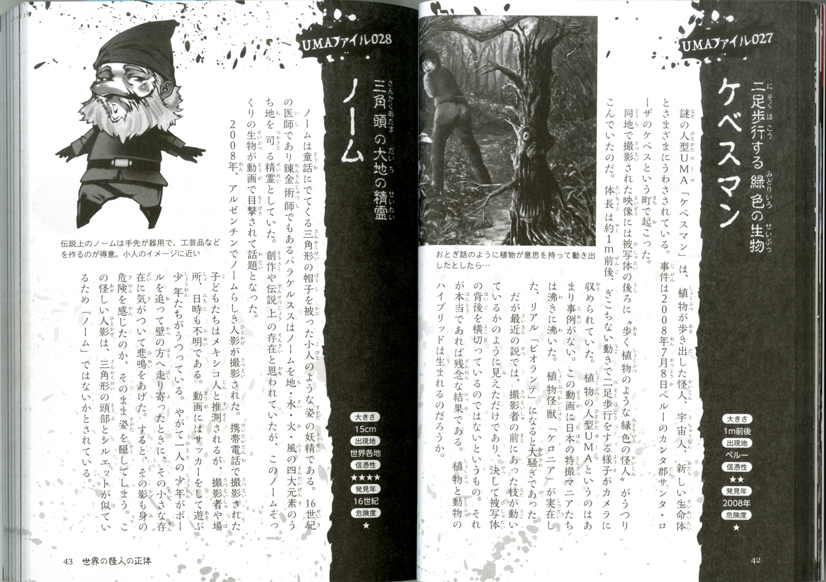 UMAファイル027
二足歩行する緑色の生物
ケベスマン
謎の人型UMA「ケベスマン」は、植物が歩き出た怪人、宇宙人、新しい生命体
とさまざまにうわさされている。事件は2008年7月8日ペルーのカンタ郡サンタ・ロ
ーザのケベスという町で起こった。
同地で撮影された映像には被写体の後ろに〝歩く植物のような緑色の怪人〟がうつり
こんでいたのだ。体長は約1m前後、ぎこちない動きで二足歩行をする様子がカメラに
収められていた。植物の人型UMAというのはあ
まり事例がない。この動画に日本の特撮マニアたち
は沸きに沸いた。植物怪獣「ケロニア」が実在し
た、リアル「ビオランテ」になると大騒ぎであった。
だが最近の説では、撮影者の前にあった枝が動い
ているかのように見えただけであり、決して被写体
の背後を横切っているのではないというもの。それ
が本当であれば残念な結果である。植物と動物の
ハイブリッドは生まれるのだろうか。
おとぎ話のように植物が意思を持って動き出
したとしたら…
大きさ
1m前後
出現地
ペルー
信憑性
★★
発見年
2008年
危険度
★
42
UMAファイル028
三角頭の大地の精霊
ノーム
ノームは童話にでてくる三角形の帽子を被った小人のような姿の妖精である。16世紀
の医師であり錬金術師でもあるパラケルススはノームを地・水・火・風の四大元素のう
ち地を司る精霊としていた。創作や伝説上の存在と思われていたが、このノームそっ
くりの生物が動画で目撃されて話題となった。
2008年、アルゼンチンでノームらしき人影が撮影された。携帯電話で撮影された
子どもたちはメキシコ人と推測されるが、撮影者や場
所、日時も不明である。動画にはサッカーをして遊ぶ
少年たちがうつっている。やがて一人の少年がボー
ルを追って壁の方へ走り寄ったときに、その小さな存
在に気がついて悲鳴をあげた。すると、その影も身の
危険を感じたのか、そのまま姿を隠してしまう。こ
の怪しい人影は、三角形の頭部とシルエットが似てい
るため「ノーム」ではないかとされている。
伝説上のノームは手先が器用で、工芸品など
を作るのが得意。小人のイメージに近い
大きさ
15cm
出現地
世界各地
信憑性
★★★★
発見年
16世紀
危険度
★
43 世界の怪人の正体